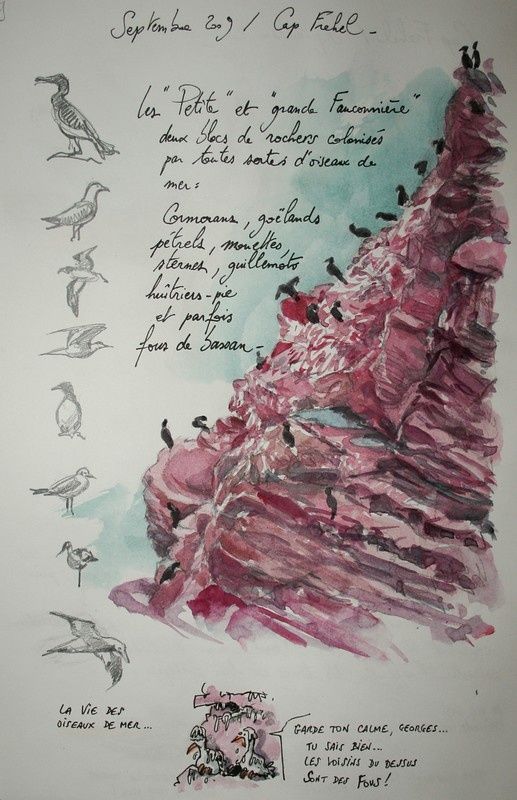 Septembre 2009 / Cap Frehel -
les "Petite" et "grande Fauconnière"
deux blocs de rochers colonisés
par toutes sortes d'oiseaux de
mer :
Cormorans, goëlands
pétrels, mouettes,
sternes, guillemots
huîtriers-pie
et parfois
fous de bassan -
LA VIE DES
OISEAUX DE MER ...
GARDE TON CALME, GEORGES...
TU SAIS BIEN...
LES VOISINS DU DESSUS
SONT DES FOUS !